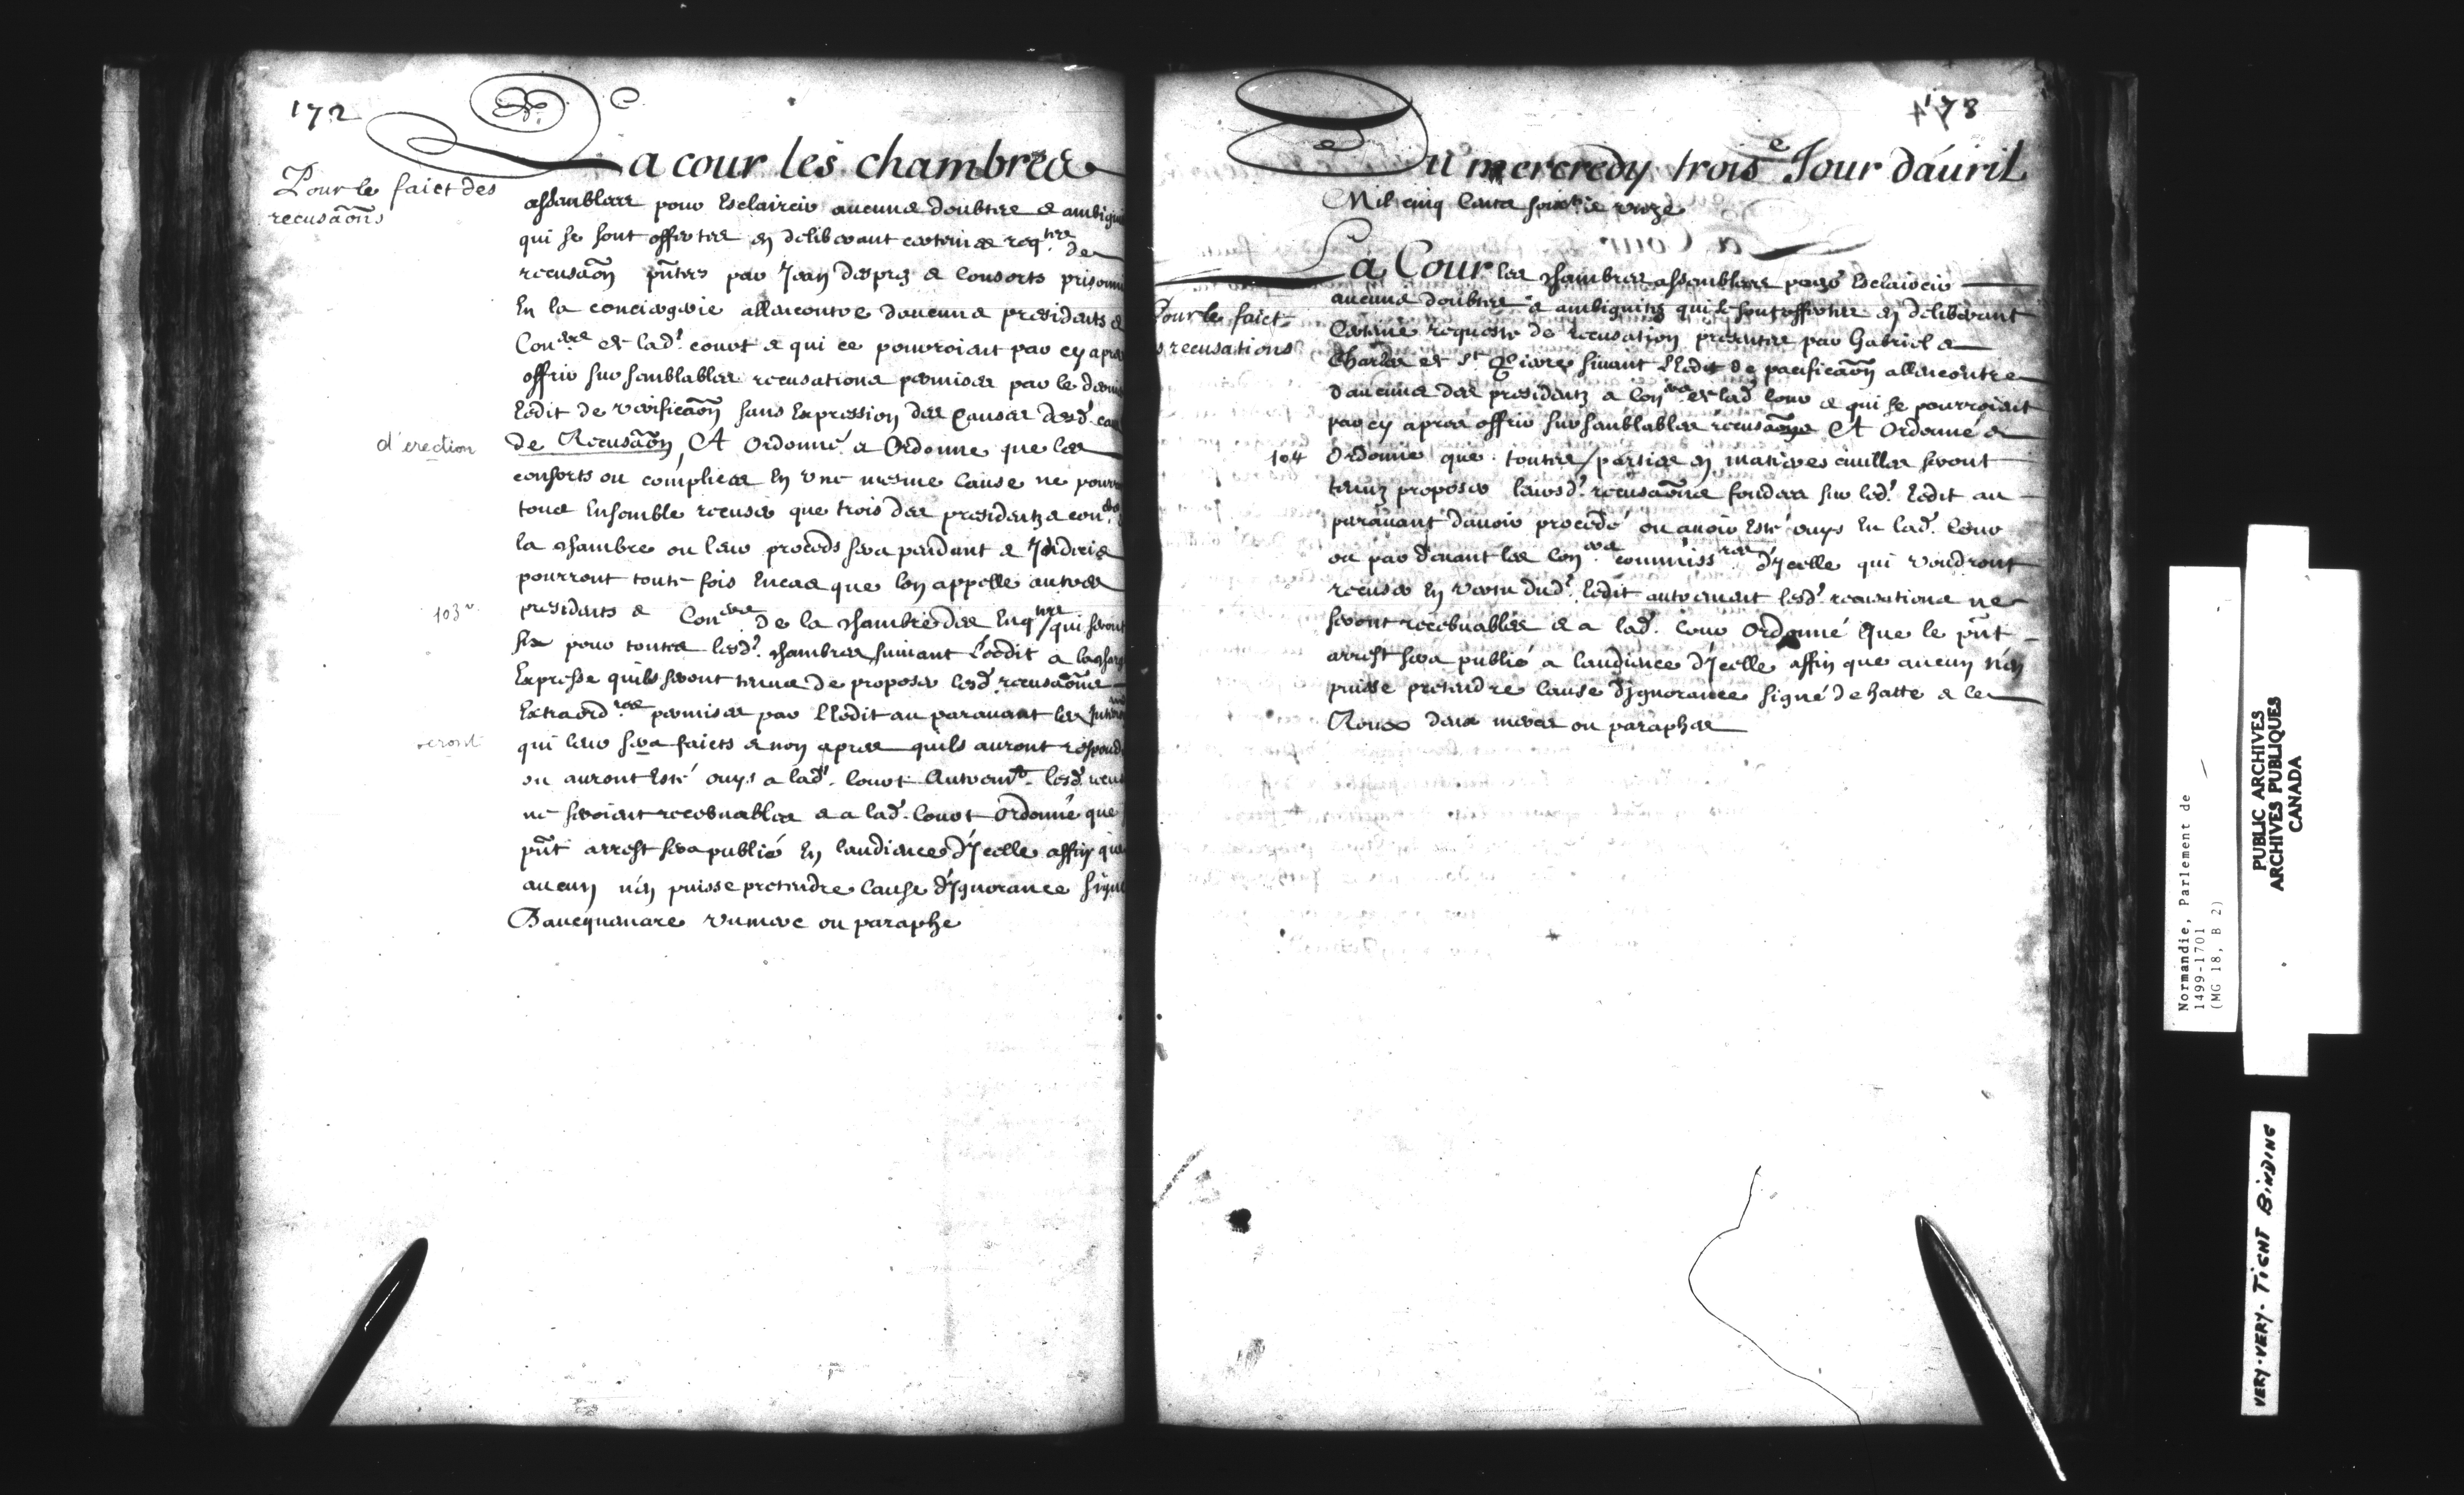 172
Pour le faict des
recusaõns
La cour les chambres
assemblees pour esclaircir aucuns doubtes & ambigui
qui se sont offertes en deliberant certaines reqtes de
recusaõn pñtes par Jean desprez & consorts prisonni
en la conciergerie allencontre daucuns presidents &
Coners de lad. court & qui ce pourroient par cy apres
offrir sur semblables recusations permises par le dernier
Edit de verificaõn sans expression des causes desd.
d'erection
de Recusaõn, A Ordonné & Ordonne que les
consorts ou complices en une mesme cause ne pourr
tous ensemble recuser que trois des presidents & coners
la chambre ou leur proceds sera pendant & Indecis
pourront toute fois encas que lon appelle autres
103v
presidents & Coners de la chambre des Enqtes qui seront
six pour toutes lesd. chambres suivant l'eedit a la charg
expresse quils seront tenus de proposer lesd. recusaõns
extraordres permises par l'Edit au paravant les Inter
seront
qui leur sera faicts & non apres quils auront respondu
ou auront esté ouys a lad. court Autremt lesd. recus
ne seroient recebvables & a lad. court Ordonné que
pñt arrest sera publié en laudience d'Icelle affin que
aucun n'en puisse pretendre cause d'Ignorance signé
Baucquemare un merc ou paraphe
173
Du mercredy troise Jour d'avril
Mil cinq cents soixte & unze
Pour le faict
s recusations
La Cour les chambres assemblees pour esclaircir
aucuns doubtes & ambiguitez qui se sont offertes en deliberant
certaine requeste de recusation presentee par Gabriel &
Charles et st suivant l'Edit de pacificaõn allencontre
d'aucuns des presidentz & coners de lad. cour & qui se pourroient
par cy apres offrir sur semblables recusaõns A Ordonné &
104
Ordonne que toutes parties en matieres civilles seront
tenuz proposer leursd. recusaõns fondees sur led. Edit au
paravant d'avoir procedé ou avoir esté ouys en lad. cour
ou par devant les coners commissres d'Icelle qui voudront
recuser en vertu dud. Edit autrement lesd. recusations ne
seront recebvables & a lad. cour Ordonné Que le pñt
arrest sera publié a laudience d'Icelle affin que aucun n'en
puisse pretendre cause d'Ignorance signé de hatte & le
Roux deux mercs ou paraphes
Normandie, Parlement de
1499-1701
(MG 18, B 2)
PUBLIC ARCHIVES
ARCHIVES PUBLIQUES
CANADA
VERY-VERY-TIGHT BINDING